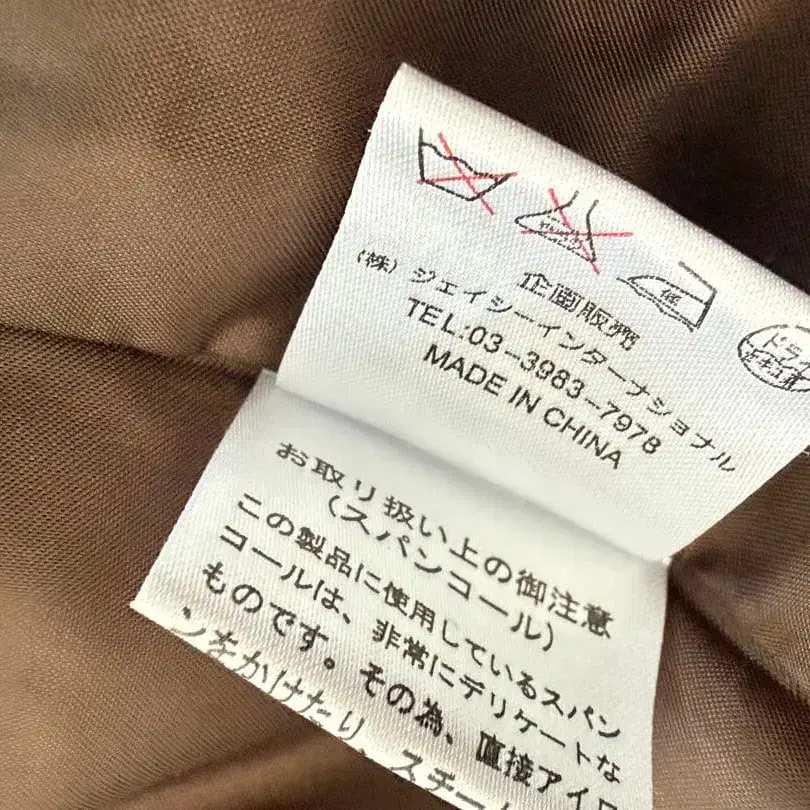 低
ドライ
企画販売
(株)ジェイシーインターナショナル
TEL:03-3983-7978
MADE IN CHINA
お取り扱い上の御注意
(スパンコール)
この製品に使用しているスパン
コールは、非常にデリケートな
ものです。その為、直接アイロ
ンをかけたり、スチー